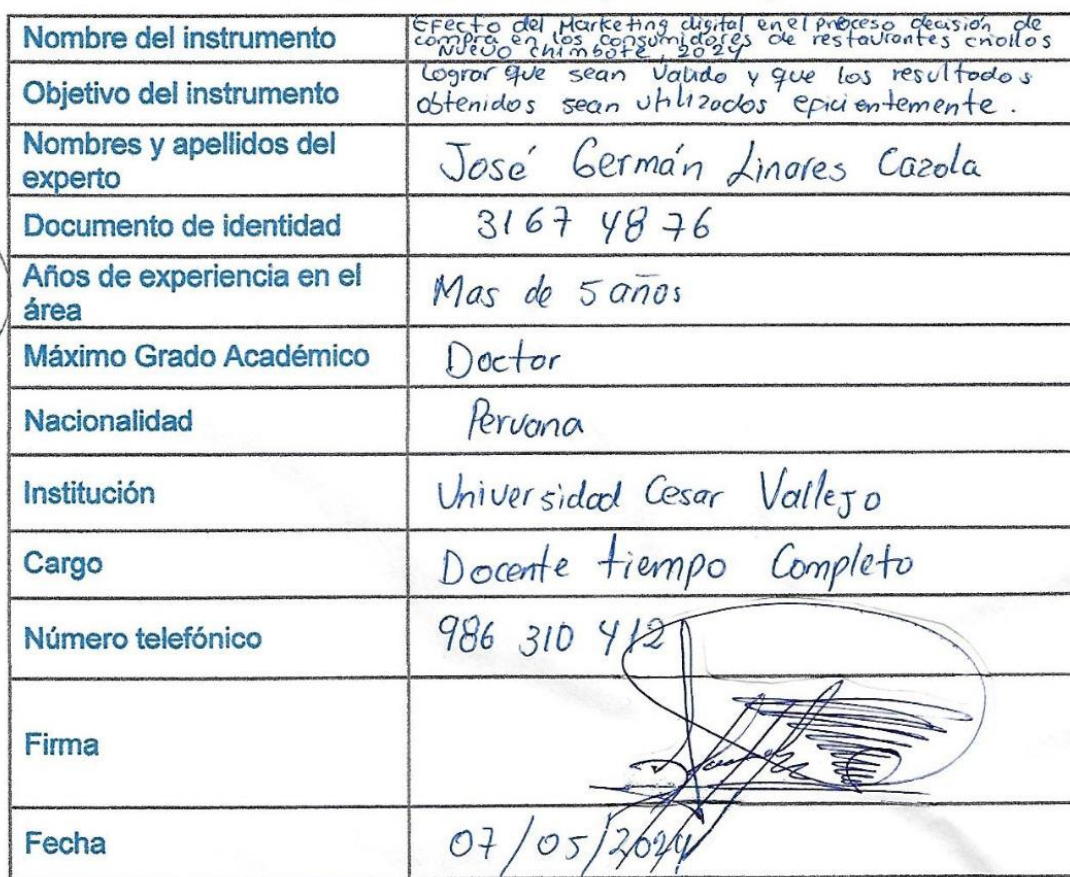 Nombre del instrumento
Efecto del Marketing digital en el proceso decisión de
compra en los consumidores de restaurantes criollos
Nuevo Chimbote, 2024
Objetivo del instrumento
Lograr que sean Valido y que los resultados
obtenidos sean utilizados eficientemente.
Nombres y apellidos del
experto
José Germán Linares Cazola
Documento de identidad
3167 48 76
Años de experiencia en el
área
Mas de 5 años
Máximo Grado Académico
Doctor
Nacionalidad
Peruana
Institución
Universidad Cesar Vallejo
Cargo
Docente tiempo Completo
Número telefónico
986 310 412
Firma
Fecha
07/05/2024